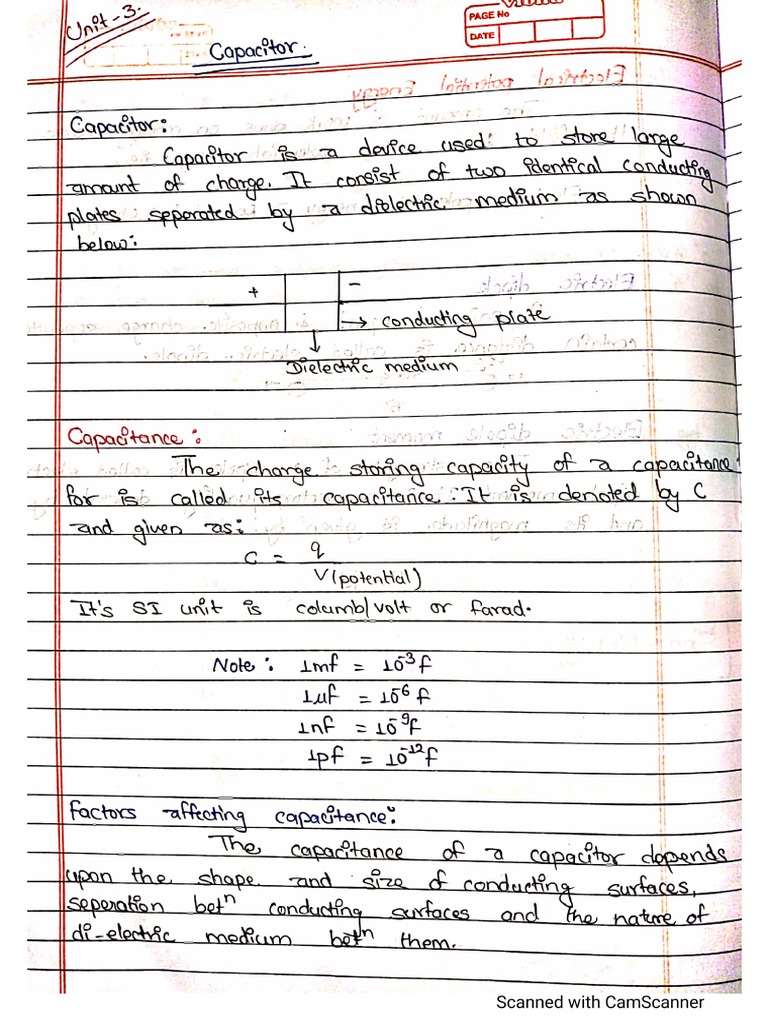 Unit-3.
PAGE No
DATE
Capacitor.
Capacitor:
Capacitor is a device used to store large
amount of charge. It consist of two identical conducting
plates seperated by a dielectric medium as shown
below:
+ -
→ conducting plate
Dielectric medium
Capacitance:
The charge storing capacity of a capacitance
for is called its capacitance. It is denoted by C
and given as:
C = q
V(potential)
It's SI unit is columb/volt or farad.
Note: 1mf = 10⁻³f
1uf = 10⁻⁶f
1nf = 10⁻⁹f
1pf = 10⁻¹²f
Factors affecting capacitance:
The capacitance of a capacitor depends
upon the shape and size of conducting surfaces,
seperation betⁿ conducting surfaces and the nature of
di-electric medium betⁿ them.
Scanned with CamScanner